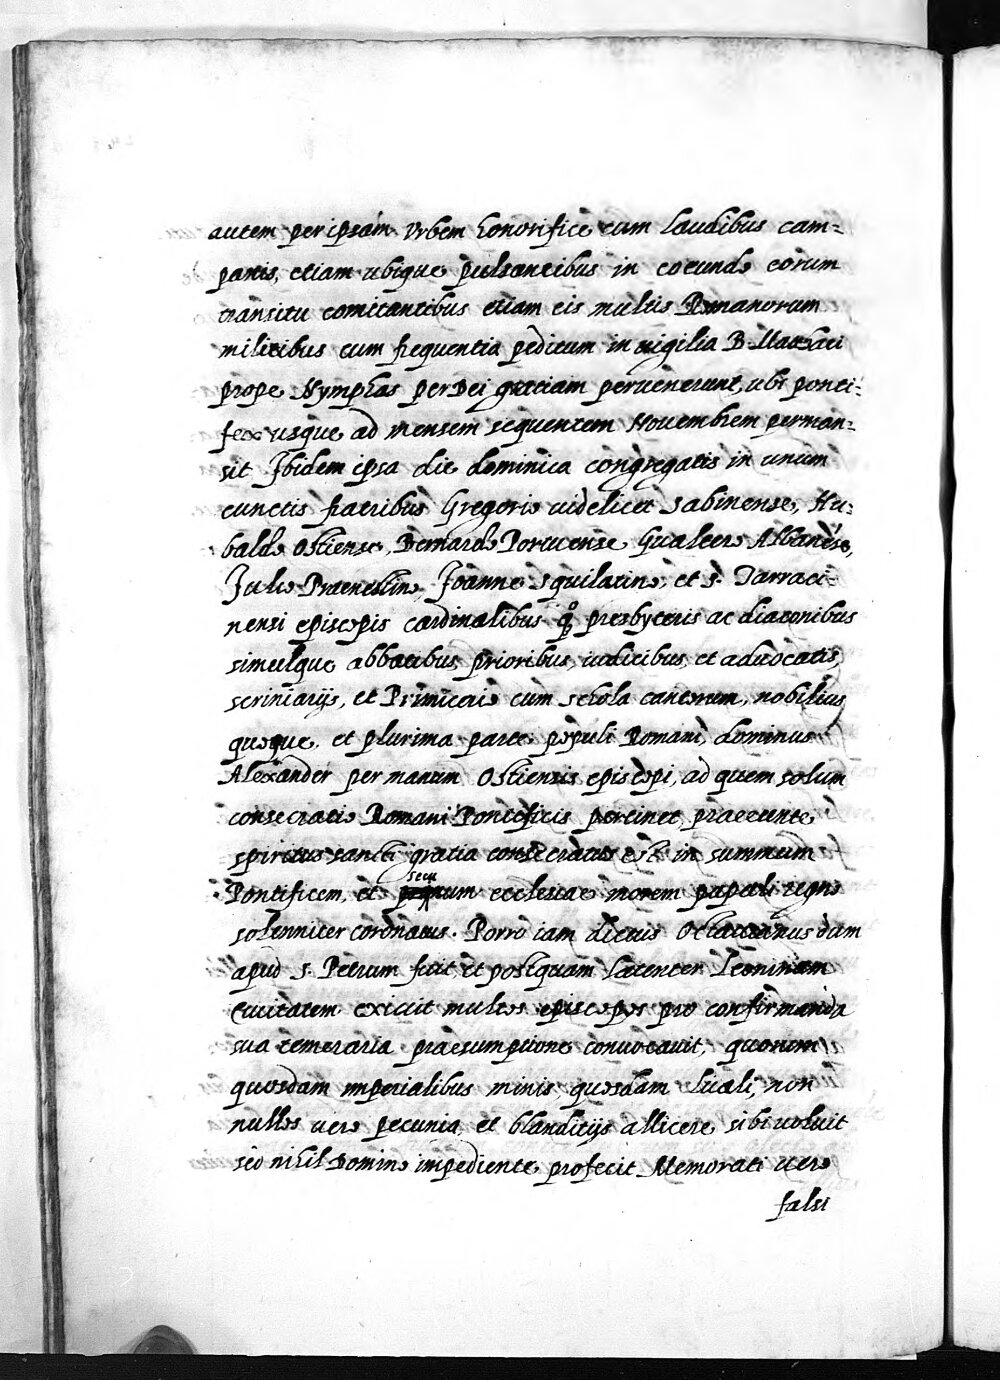 autem per ipsam Vrbem honorifice cum laudibus cam=
panis, etiam ubique pulsantibus in eoeundo eorum
transitu comitantibus etiam eis multis Romanorum
militibus cum frequentia peditum in uigilia B. Matthaei
prope Nymphas per Dei gratiam peruenerunt, ubi ponti=
fex usque ad mensem sequentem Nouembrem perman=
sit Ibidem ipsa die dominica congregatis in unum
cunctis fratribus Gregorio uidelicet Sabinense, Hu=
baldo Ostiense, Bernardo Portuense Gualtero Albanése,
Julio Praenestino, Joanne Squilatino, et S. Tarraci=
nensi episcopis cardinalibus q̊ presbyteris ac diaconibus
simulque abbatibus, prioribus, iudicibus et aduocatis,
scriniarijs, et Primicerio cum schola cantorum, nobilius
quoque, et plurima parte populi Romani, dominus
Alexander per manum Ostiensis episcopi, ad quem solum
consecratio Romani Pontificis pertinet, praeeunte
spiritus sancti gratia consecratus est in summum
Pontificem, et secundum ecclesiae morem papali regno
solenniter coronatus. Porro iam dictus Octauianus dam
apud S. Petrum fuit et postquam latenter Leoninam
Ciuitatem exiuit multos episcopos pro confirmanda
sua temeraria praesumptione conuocauit, quorum
quosdam imperialibus minis, quosdam lucali, non
nullos uero pecunia, et blanditijs allicere sibi uoluit
sed nihil Domino impediente, profecit Memorati uero
falsi